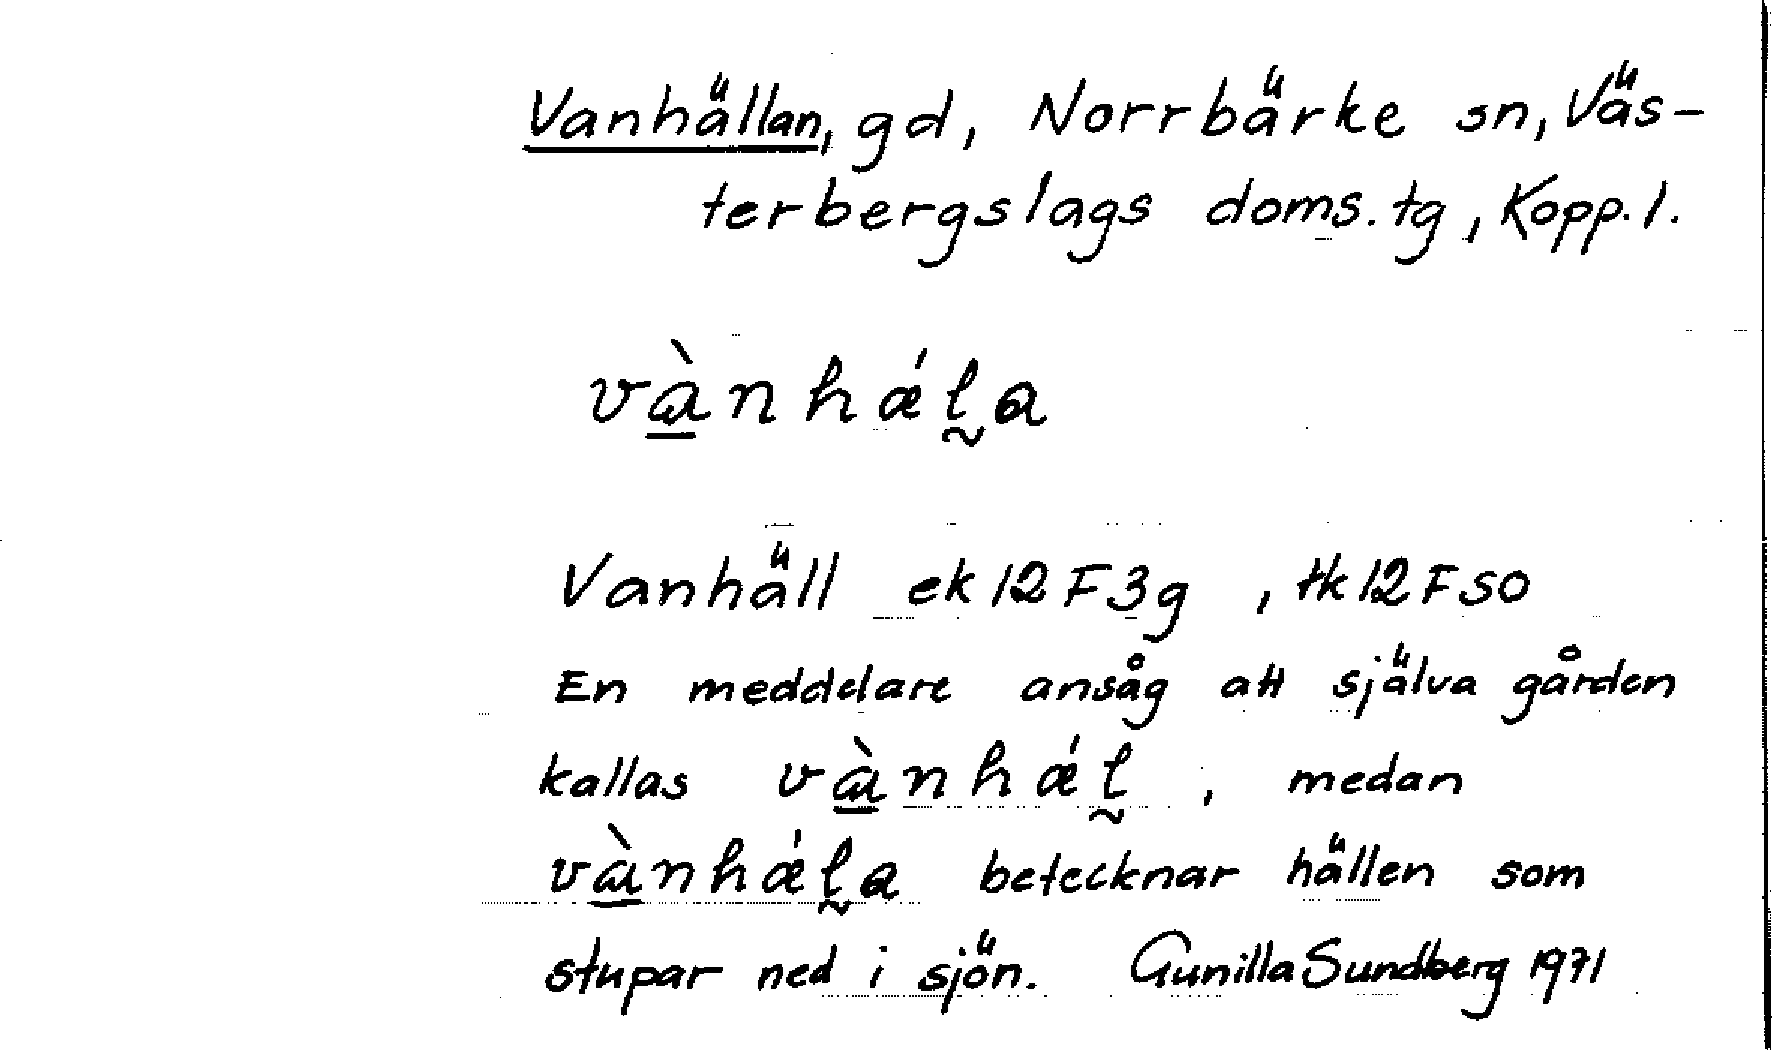 Vanhällan, gd, Norrbärke sn, Väs-
terbergslags doms. tg, Kopp. l.
và̱nhǽl̰a
Vanhäll ek 12 F 3g , tk 12 F SO
En meddelare ansåg att själva gården
kallas và̱nhǽl̰ , medan
và̱nhǽl̰a betecknar hällen som
stupar ned i sjön. Gunilla Sundberg 1971